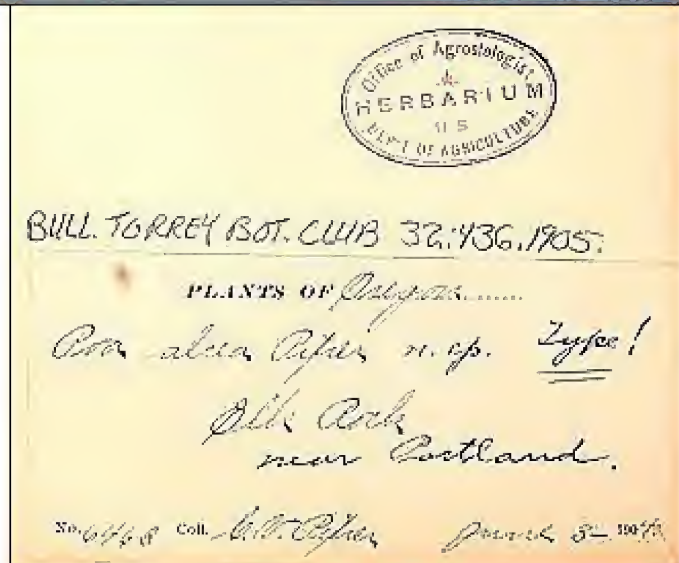 Office of Agrostologist
HERBARIUM
U S
DEP'T OF AGRICULTURE
BULL. TORREY BOT. CLUB 32:436.1905.
PLANTS OF Oregon
Poa alcea Piper n. sp. Type!
Elk Rock
near Portland.
No. 6468 Coll. C.V. Piper 190